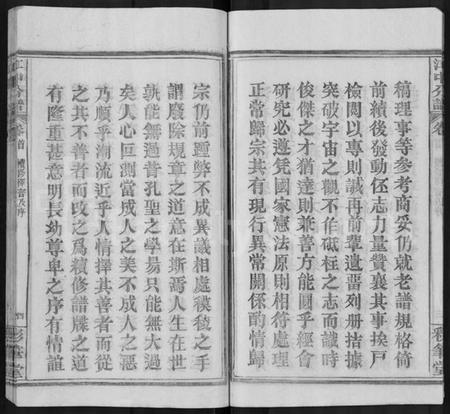 江中分譜
卷
彩筆堂
稿理事等參考商妥仍就老譜規格倚
前績後發動任志力量贊襄其事挨戶
檢閱以專則誠再前輩遺畱列册拮據
突破宇宙之觀不作砥柱之志而識時
俊傑之才猶達則兼善方能圓乎經會
研究必遵凭國家憲法原則相符處理
正常歸宗共有現行異常關係酌情歸
宗仍前置弊不成異議相處之手
謂廢除規章之道意在斯焉人生在世
孰能無過昔孔聖之學易只能無大過
矣人心叵測當成人之美不成人之惡
乃順乎潮流近乎人情擇其善者而從
之其不善者而改之爲續修譜牒之道
有隆重甚意明長幼尊卑之序有情誼
江中分譜
卷首
彩筆堂